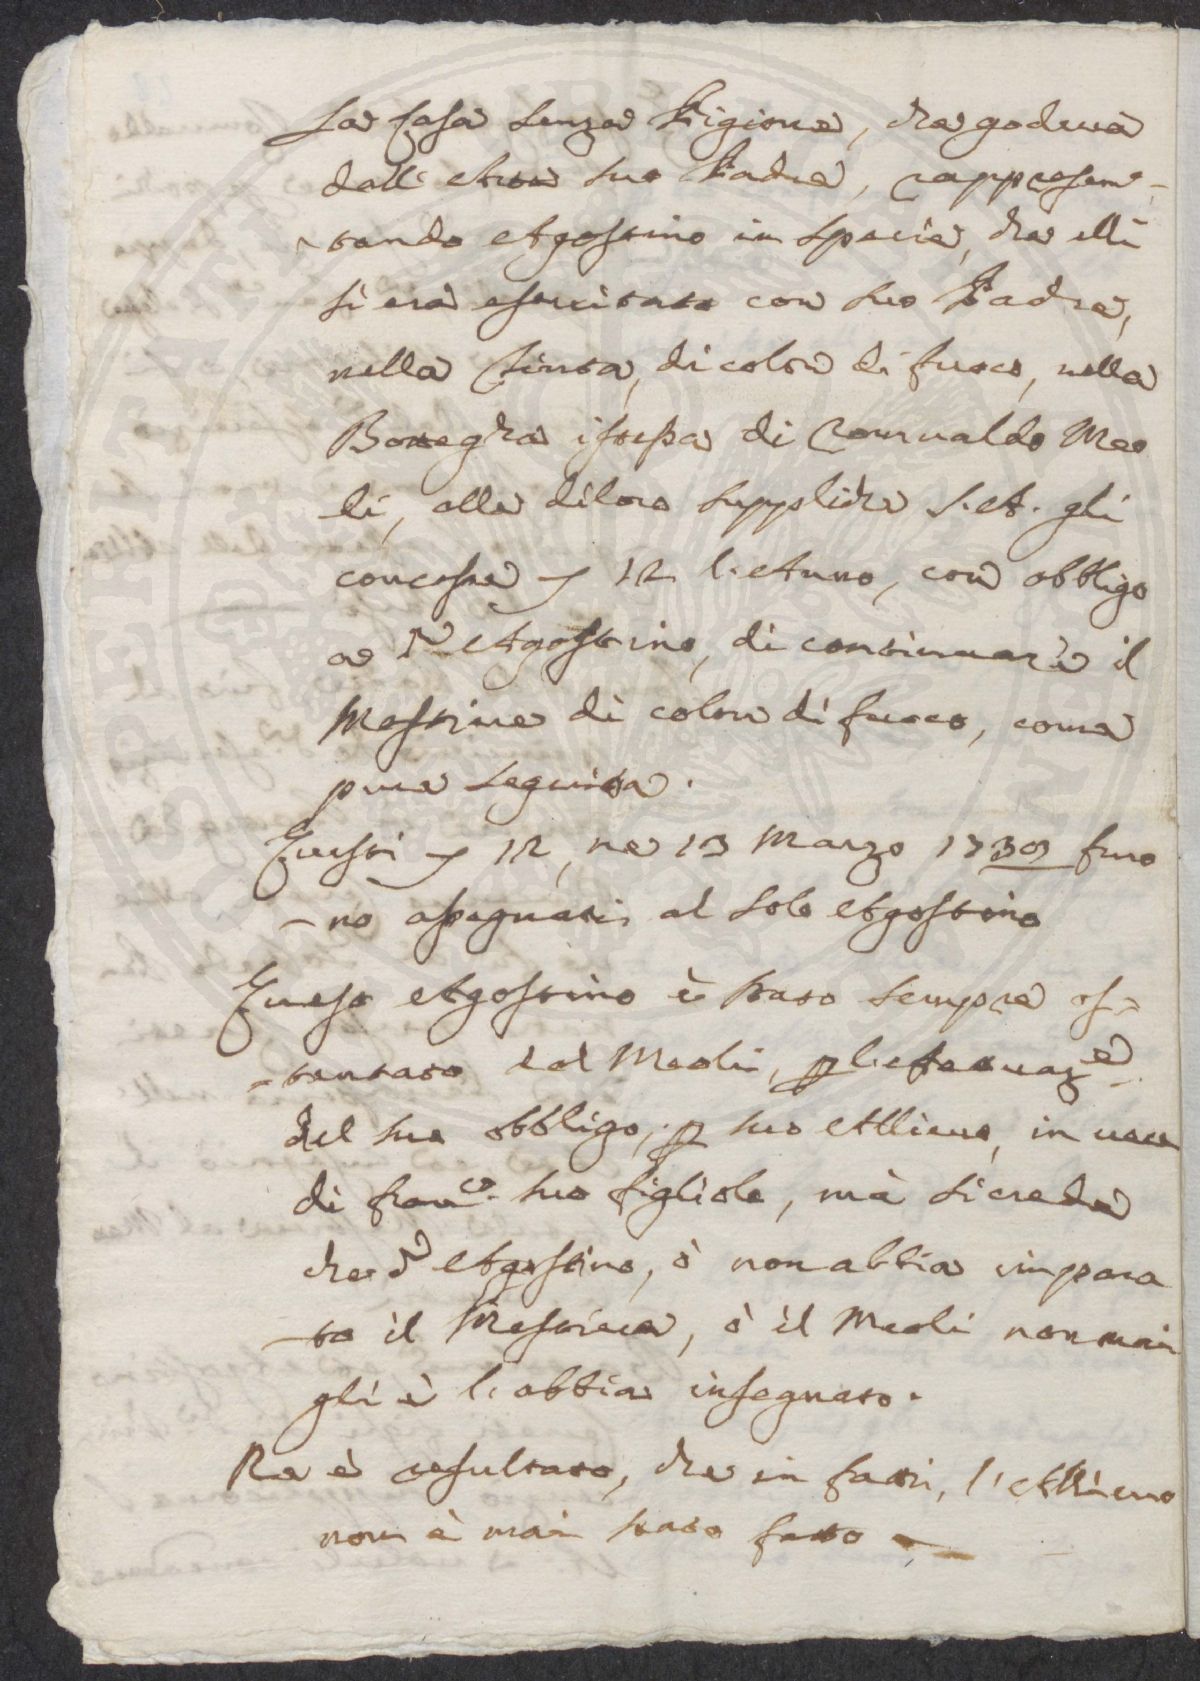 La Casa senza Pigione, che godeva
dall' etsoa suo Padre, rappresen-
-tando Agostino in specie, che elli
si era esercitato con suo Padre,
nella Tinta, di color di fuoco, nella
Bottegha istessa di Romualdo Meo
li, alle di loro suppliche S. A. gli
concesse 12 l'Anno, con obbligo
a d.º Agostino, di continuare il
Mestiere di color di fuoco, come
pure seguita.
Questi 12, ne 13 Marzo 1739 furo
-no assegnati al solo Agostino
Questo Agostino è stato sempre os-
-tentato dal Meoli, p l'
del suo obbligo, p suo Allievo, in vece
di Fran.co suo figliolo, mà si crede
che d.º Agostino, ò non abbia impara
-to il Mestiere, ò il Meoli non mai
gli è l'abbia insegnato.
Ne è resultato, che in fatti, l'Allievo
non è mai stato fatto